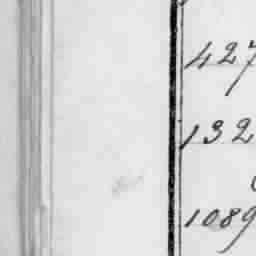 427
132
1089